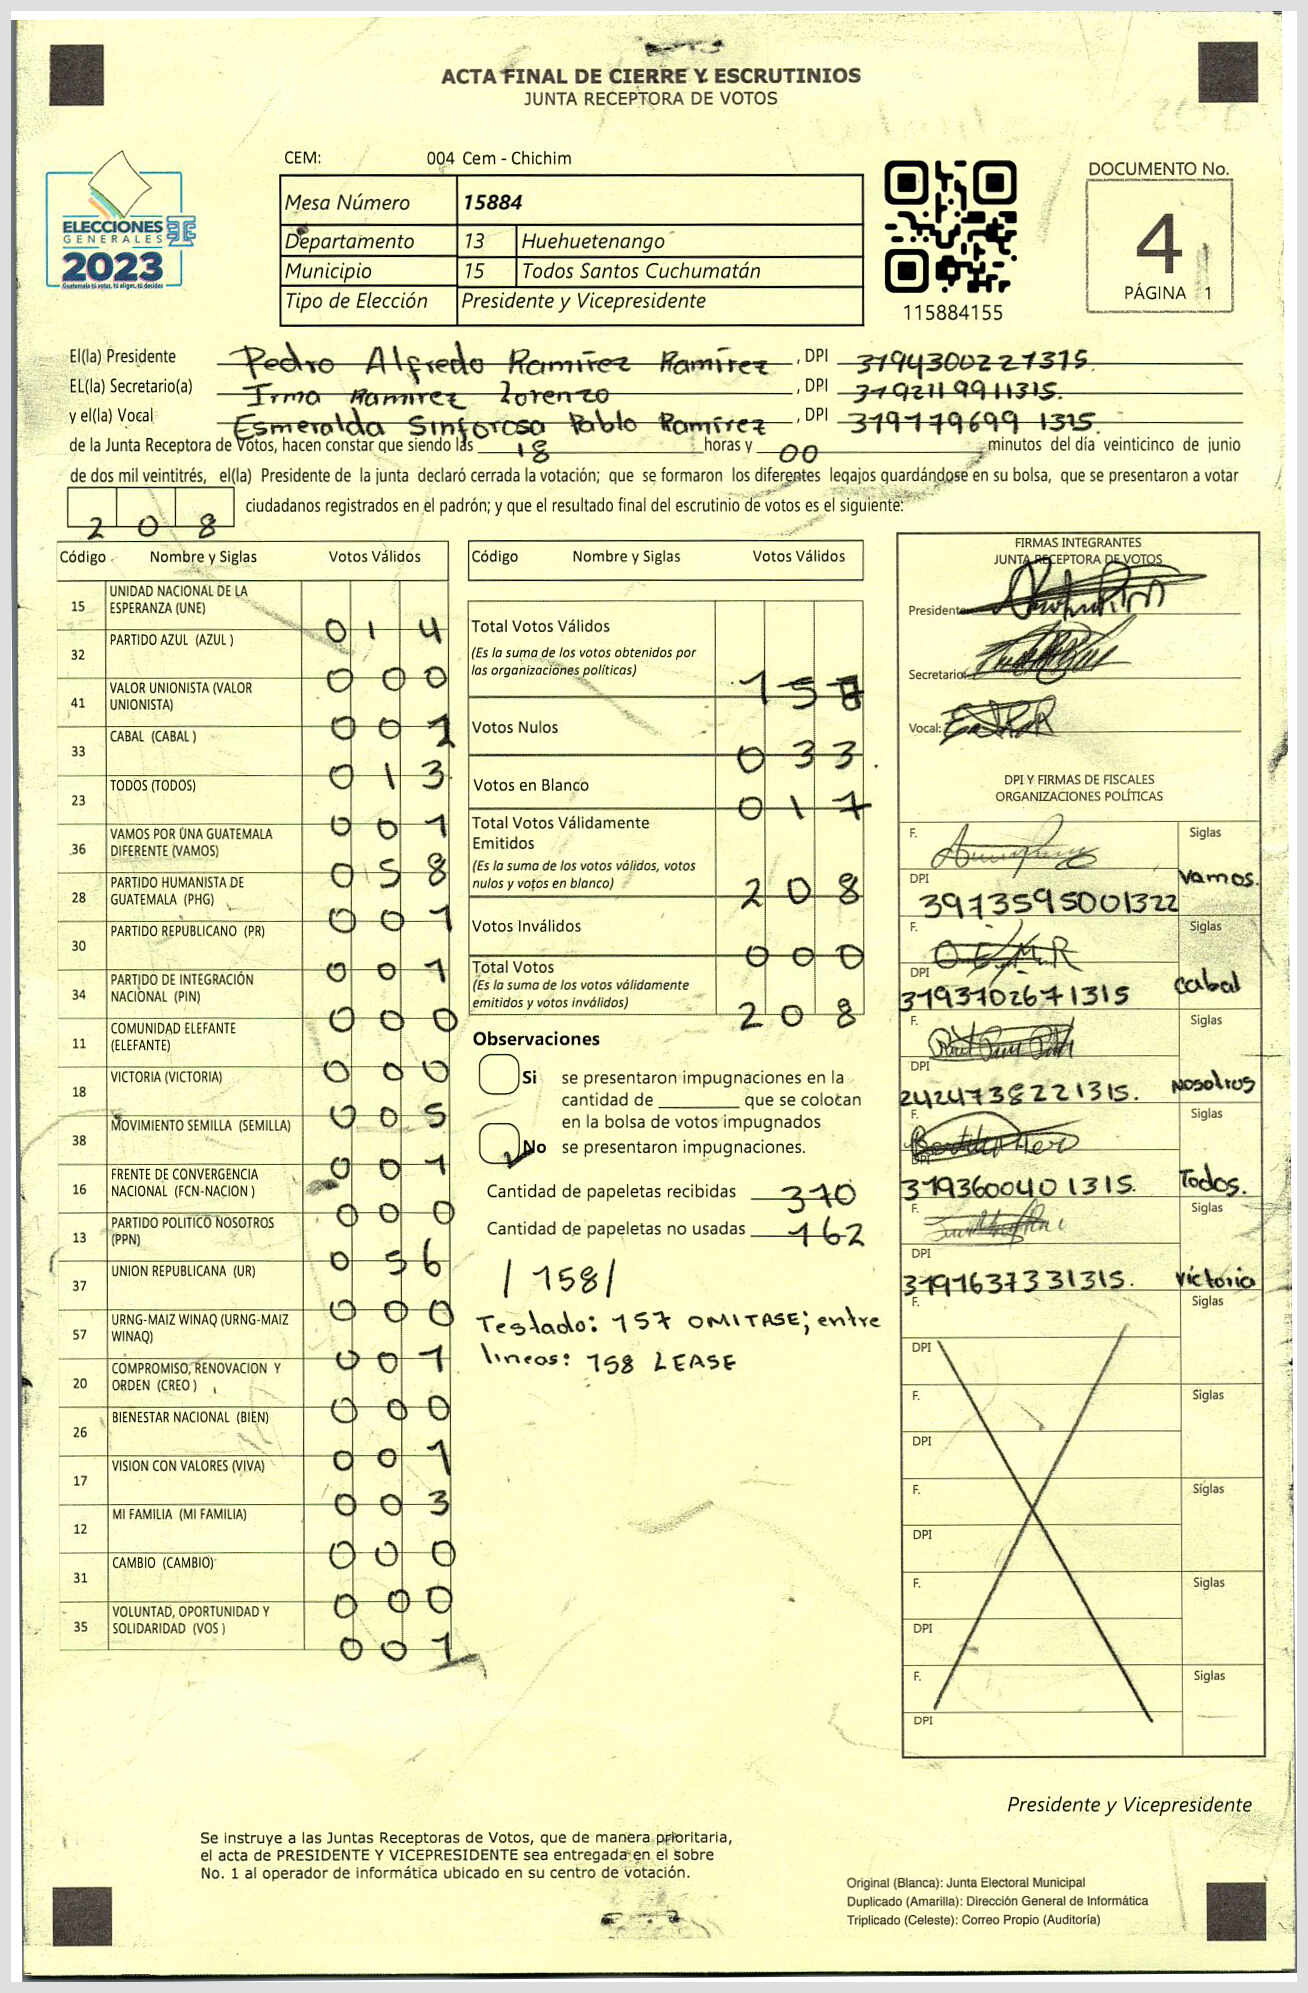 ACTA FINAL DE CIERRE Y ESCRUTINIOS
JUNTA RECEPTORA DE VOTOS
CEM: 004 Cem - Chichim
DOCUMENTO No.
4
PÁGINA 1
ELECCIONES
GENERALES
2023
Guatemala tú votas, tú eliges, tú decides
Mesa Número 15884
Departamento 13 Huehuetenango
Municipio 15 Todos Santos Cuchumatán
Tipo de Elección Presidente y Vicepresidente
115884155
El(la) Presidente Pedro Alfredo Ramírez Ramírez, DPI 3194300221315.
EL(la) Secretario(a) Irma Ramirez Lorenzo, DPI 3192119911315.
y el(la) Vocal Esmeralda Sinforosa Pablo Ramírez, DPI 319779699 1315.
de la Junta Receptora de Votos, hacen constar que siendo las 18 horas y 00 minutos del día veinticinco de junio
de dos mil veintitrés, el(la) Presidente de la junta declaró cerrada la votación; que se formaron los diferentes legajos guardándose en su bolsa, que se presentaron a votar
208 ciudadanos registrados en el padrón; y que el resultado final del escrutinio de votos es el siguiente:
Código Nombre y Siglas Votos Válidos
15 UNIDAD NACIONAL DE LA ESPERANZA (UNE) 014
32 PARTIDO AZUL (AZUL ) 000
41 VALOR UNIONISTA (VALOR UNIONISTA) 001
33 CABAL (CABAL ) 013
23 TODOS (TODOS) 001
36 VAMOS POR UNA GUATEMALA DIFERENTE (VAMOS) 058
28 PARTIDO HUMANISTA DE GUATEMALA (PHG) 001
30 PARTIDO REPUBLICANO (PR) 001
34 PARTIDO DE INTEGRACIÓN NACIONAL (PIN) 000
11 COMUNIDAD ELEFANTE (ELEFANTE) 000
18 VICTORIA (VICTORIA) 005
38 MOVIMIENTO SEMILLA (SEMILLA) 001
16 FRENTE DE CONVERGENCIA NACIONAL (FCN-NACION ) 000
13 PARTIDO POLITICO NOSOTROS (PPN) 056
37 UNION REPUBLICANA (UR) 000
57 URNG-MAIZ WINAQ (URNG-MAIZ WINAQ) 001
20 COMPROMISO, RENOVACION Y ORDEN (CREO ) 000
26 BIENESTAR NACIONAL (BIEN) 001
17 VISION CON VALORES (VIVA) 003
12 MI FAMILIA (MI FAMILIA) 000
31 CAMBIO (CAMBIO) 000
35 VOLUNTAD, OPORTUNIDAD Y SOLIDARIDAD (VOS ) 001
Código Nombre y Siglas Votos Válidos
Total Votos Válidos 157
(Es la suma de los votos obtenidos por
las organizaciones políticas)
Votos Nulos 033.
Votos en Blanco 017
Total Votos Válidamente
Emitidos
(Es la suma de los votos válidos, votos
nulos y votos en blanco) 208
Votos Inválidos 000
Total Votos
(Es la suma de los votos válidamente
emitidos y votos inválidos) 208
Observaciones
Si se presentaron impugnaciones en la
cantidad de ________ que se colocan
en la bolsa de votos impugnados
No se presentaron impugnaciones.
Cantidad de papeletas recibidas 370
Cantidad de papeletas no usadas 162
/ 158 /
Testado: 157 OMITASE; entre
lineas: 158 LEASE
FIRMAS INTEGRANTES
JUNTA RECEPTORA DE VOTOS
Presidente:
Secretario:
Vocal:
DPI Y FIRMAS DE FISCALES
ORGANIZACIONES POLÍTICAS
F. Siglas
DPI 3973595001322 Vamos.
F. Siglas
DPI 3193702671315 Cabal
F. Siglas
DPI 2424738221315. Nosotros
F. Siglas
DPI 3193600401315. Todos.
F. Siglas
DPI 3191637331315. victoria
F. Siglas
DPI
F. Siglas
DPI
F. Siglas
DPI
F. Siglas
DPI
F. Siglas
DPI
Presidente y Vicepresidente
Se instruye a las Juntas Receptoras de Votos, que de manera prioritaria,
el acta de PRESIDENTE Y VICEPRESIDENTE sea entregada en el sobre
No. 1 al operador de informática ubicado en su centro de votación.
Original (Blanca): Junta Electoral Municipal
Duplicado (Amarilla): Dirección General de Informática
Triplicado (Celeste): Correo Propio (Auditoría)